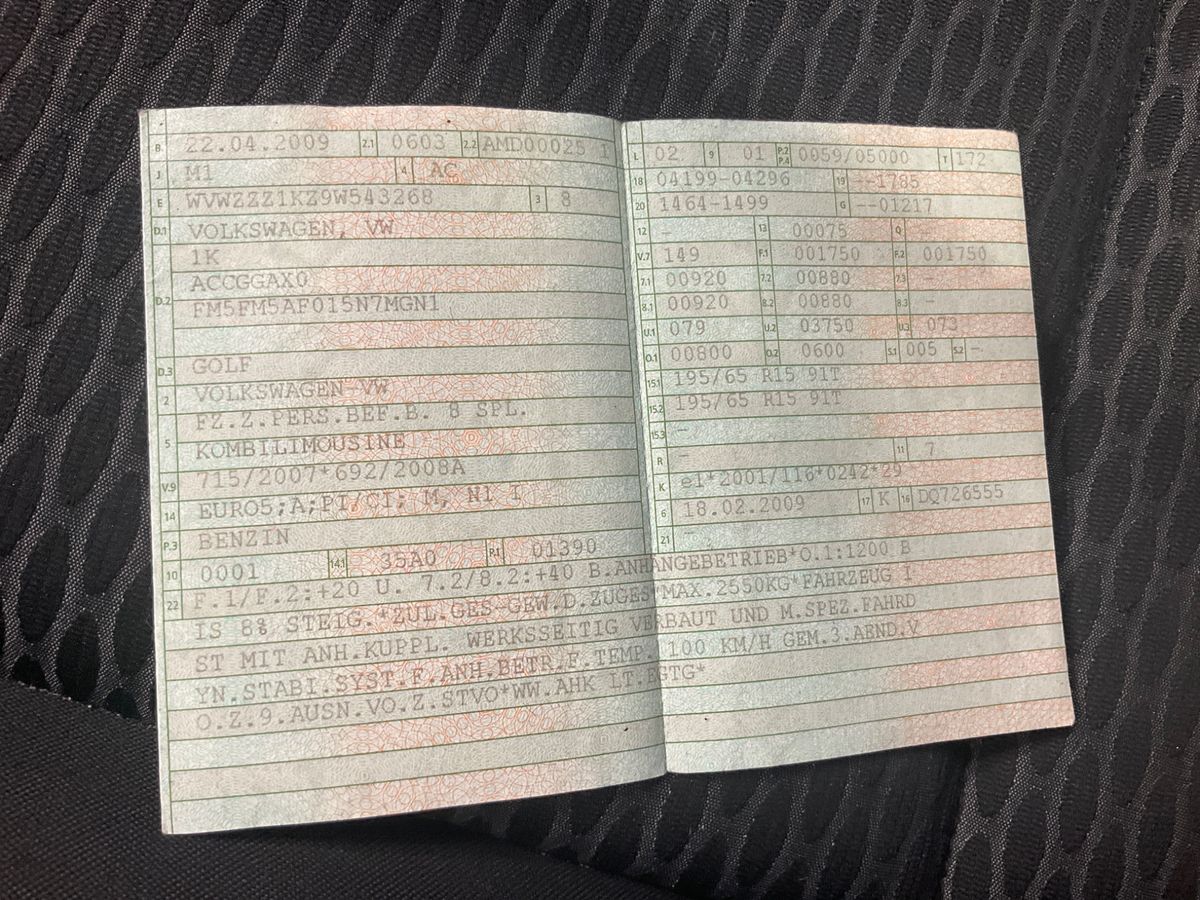 B 22.04.2009 2.1 0603 2.2 AMD00025 1
J M1 4 AC
E WVWZZZ1KZ9W543268 3 8
D.1 VOLKSWAGEN, VW
1K
ACCGGAX0
D.2 FM5FM5AF015N7MGN1
D.3 GOLF
2 VOLKSWAGEN-VW
FZ.Z.PERS.BEF.B. 8 SPL.
5 KOMBILIMOUSINE
V.9 715/2007*692/2008A
14 EURO5;A;PI/CI; M, N1 I
P.3 BENZIN
10 0001 14.1 35A0 P.1 01390
L 02 9 01 P.2 P.4 0059/05000 T 172
18 04199-04296 19 --1785
20 1464-1499 G --01217
12 - 13 00075 Q -
V.7 149 F.1 001750 F.2 001750
7.1 00920 7.2 00880 7.3 -
8.1 00920 8.2 00880 8.3 -
U.1 079 U.2 03750 U.3 073
O.1 00800 O.2 0600 S.1 005 S.2 -
15.1 195/65 R15 91T
15.2 195/65 R15 91T
15.3 -
R - 11 7
K e1*2001/116*0242*29
6 18.02.2009 17 K 16 DQ726555
21 -
22 F.1/F.2:+20 U. 7.2/8.2:+40 B.ANHANGEBETRIEB*O.1:1200 B
IS 8% STEIG.*ZUL.GES-GEW.D.ZUGES*MAX.2550KG*FAHRZEUG I
ST MIT ANH.KUPPL. WERKSSEITIG VERBAUT UND M.SPEZ.FAHRD
YN.STABI.SYST.F.ANH.BETR.F.TEMP. 100 KM/H GEM.3.AEND.V
O.Z.9.AUSN.VO.Z.STVO*WW.AHK LT.EGTG*